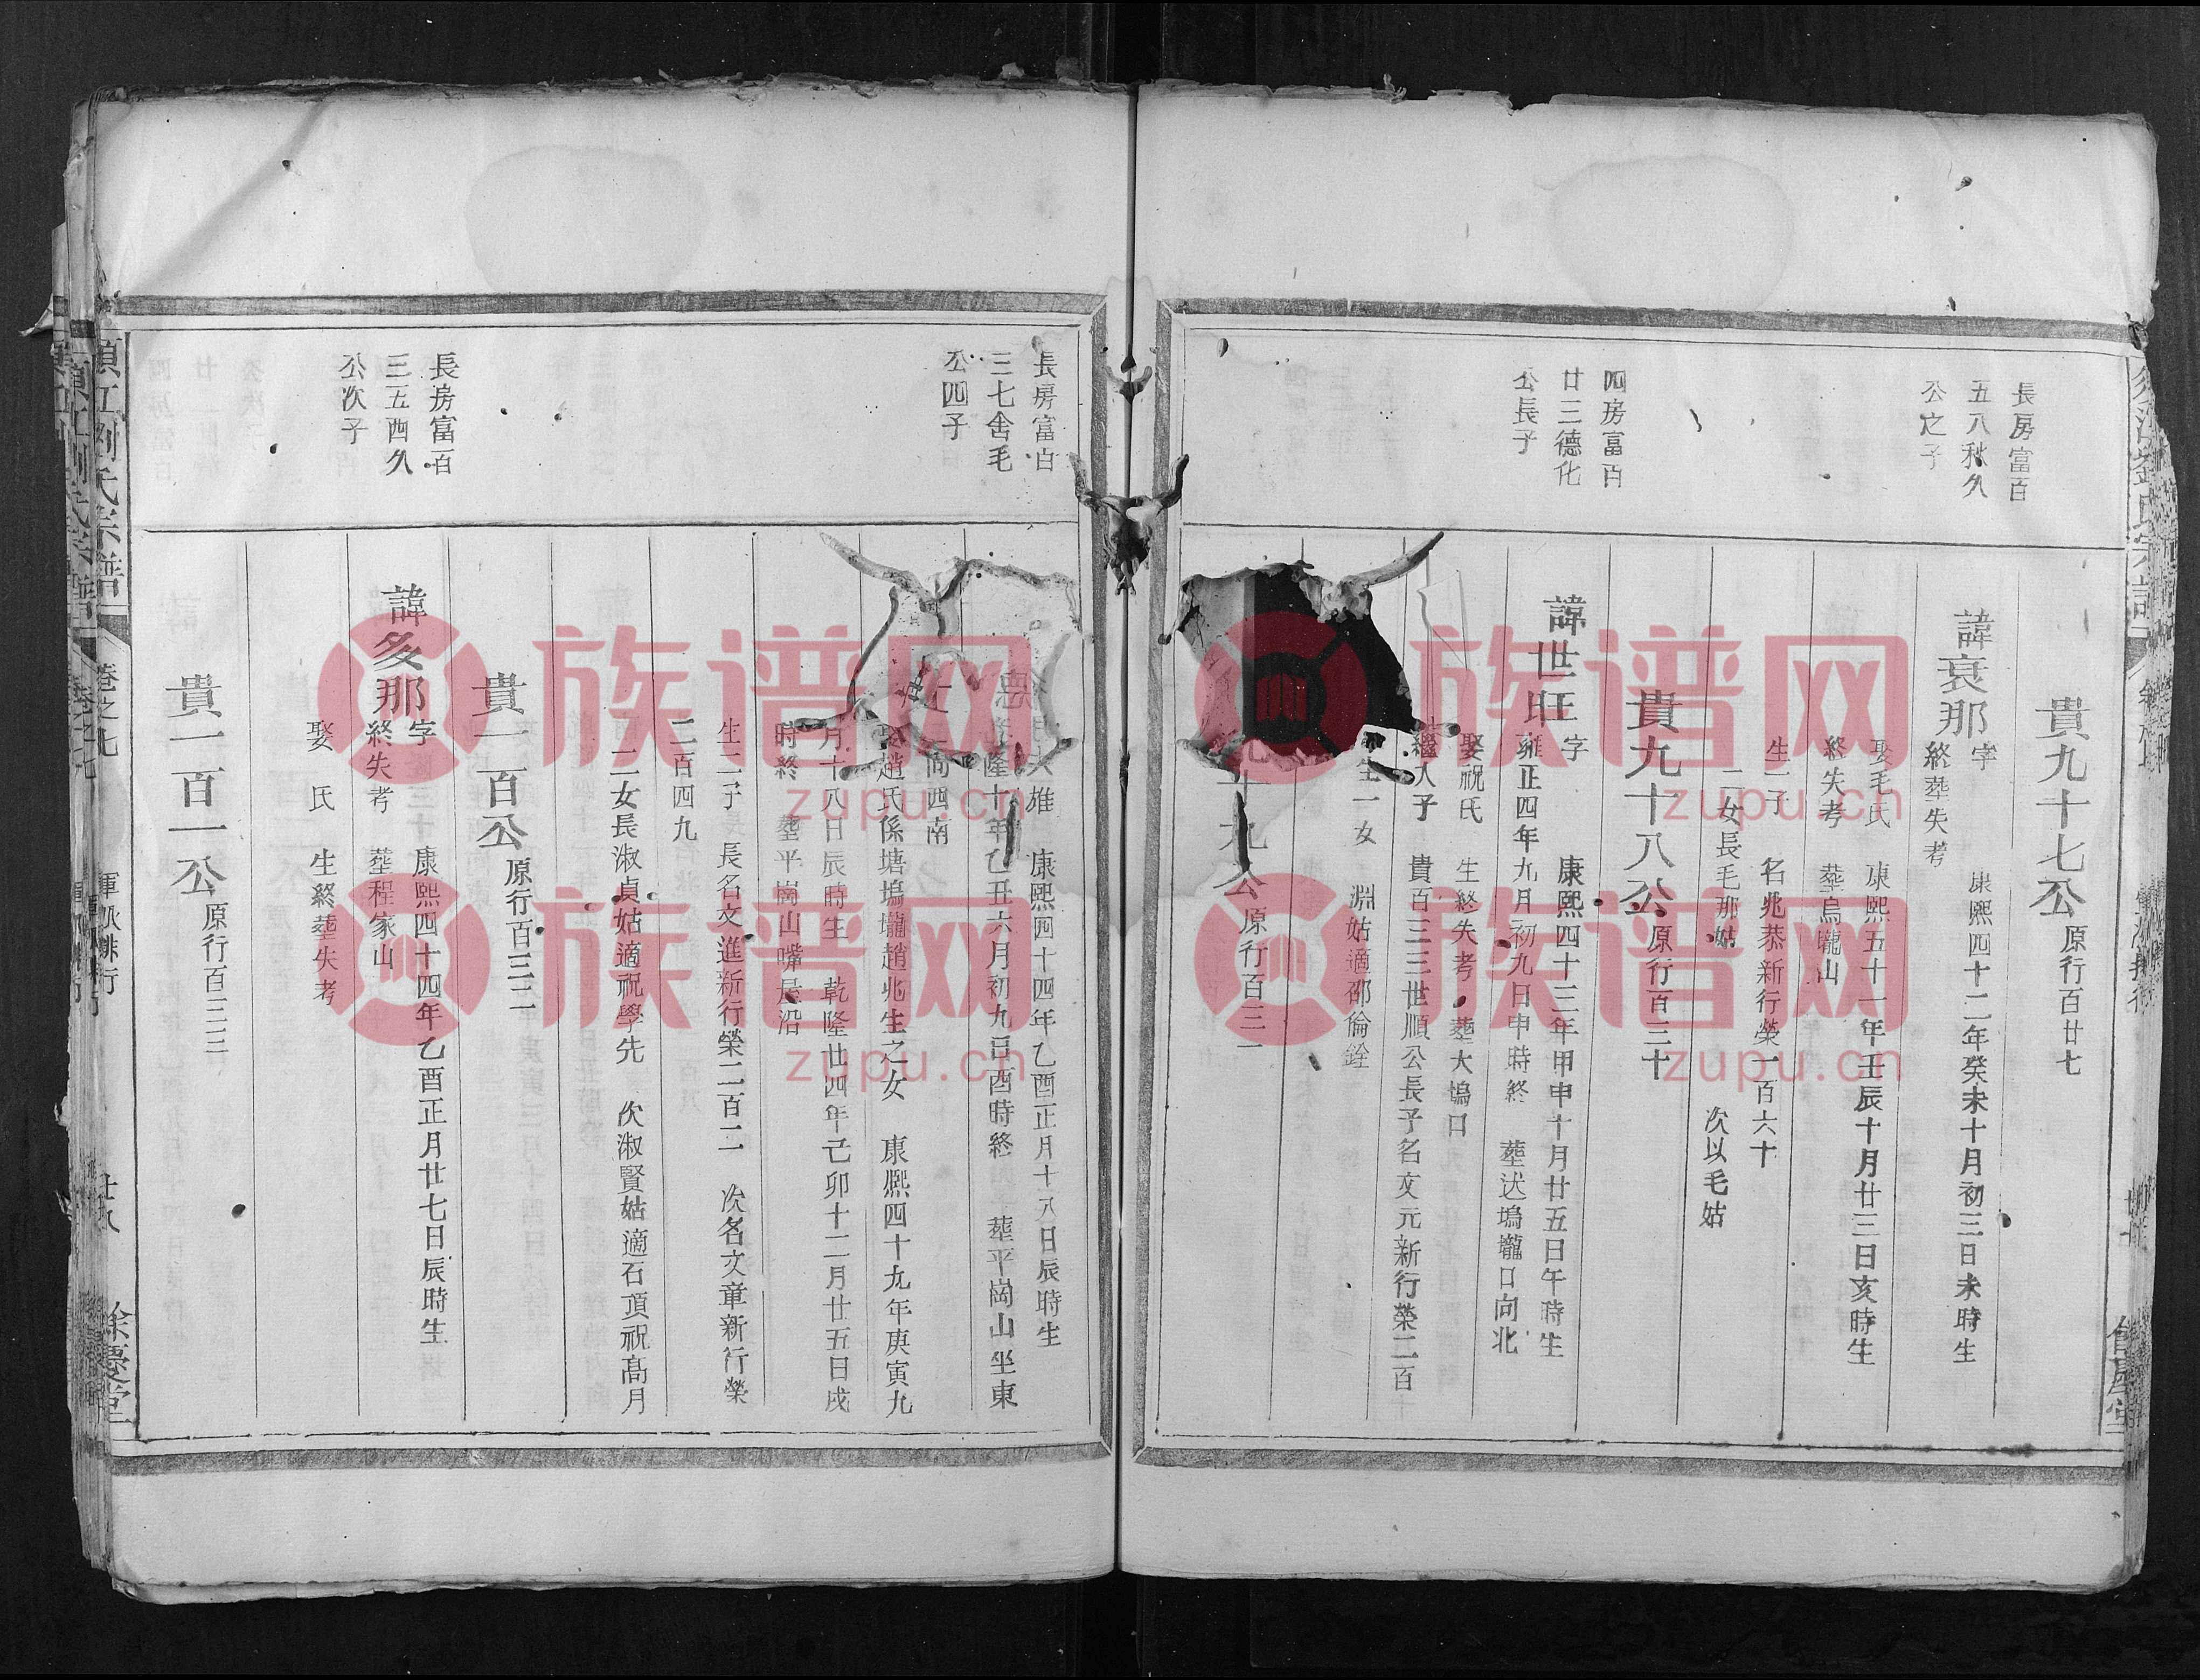 貴九十七公原行百廿七
長房富百
五八秋久
公之子
諱哀那
字 康熙四十二年癸未十月初三日未時生
終葬失考
娶毛氏 康熙五十一年壬辰十月廿三日亥時生
終失考 葬烏隴山
生一子 名兆恭新行榮一百六十
二女長毛那姑 次以毛姑
貴九十八公原行百三十
四房富百
廿三德化
公長子
諱世旺
字 康熙四十三年甲申十月廿五日午時生
雍正四年九月初九日申時終 葬泼塢壠口向北
娶祝氏 生終失考 葬大塢口
繼入子 貴百三三世順公長子名文元新行榮二百
生一女 淵姑適邵倫銓
九十九公原行百三一
長房富百
三七舍毛
公四子
雄 康熙四十四年乙酉正月十八日辰時生
隆十年乙丑六月初九日酉時終 葬平崗山坐東
向西南
趙氏係塘塢壠趙兆生之女 康熙四十九年庚寅九
月十八日辰時生 乾隆廿四年己卯十二月廿五日戌
時終 葬平崗山嘴屋沿
生二子 長名文進新行榮二百二 次名文章新行榮
二百四九
二女長淑貞姑適祝學先 次淑賢姑適石頂祝高月
貴一百公原行百三二
長房富百
三五酉久
公次子
諱多那
字 康熙四十四年乙酉正月廿七日辰時生
終失考 葬程家山
娶 氏 生終葬失考
貴一百一公原行百三三
卷之九
廿八
餘慶堂
族谱网
zupu.cn
族谱网
zupu.cn
族谱网
zupu.cn
族谱网
zupu.cn